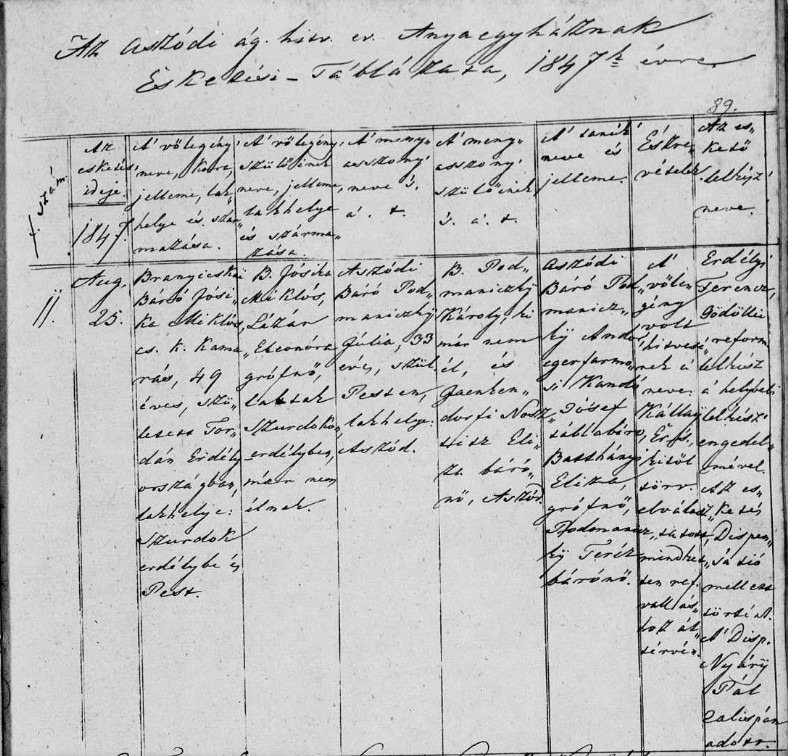 Az aszódi ág. hitv. ev. Anyaegyháznak
Esketési-Táblázata, 1847k évre
89.
f. szám.
Az
esketés
ideje.
1847.
A' vőlegény'
neve, kora,
jelleme, lak„
helye és szár„
mazása.
A' vőlegény'
szülőinek
neve, jelleme,
lakhelye
és szárma„
zása.
A' meny„
asszony'
neve 's.
a'. t.
A' meny„
asszony'
szülőinek
's. a'. t.
A' tanúk'
neve és
jelleme.
Észre„
vételek
Az es„
kető
lelkész'
neve.
11.
Aug.
25.
Branyicskai
Báró Jósi„
ka Miklós,
cs. k. kama„
rás, 49
éves, szü„
letett Tor„
dán Erdély
országban,
lakhelye:
Szurdok
erdélybe és
Pest.
B. Jósika
Miklós,
Lázár
Eleonóra
grófnő,
laktak
Szurdokon
erdélyben,
már nem
élnek.
Aszódi
Báró Pod„
maniczky
Júlia, 33
éves, szül.
Pesten,
lakhelye:
Aszód.
B. Pod„
maniczky
Károly, ki
már nem
él, és
Jaenken„
dorfi Nosz„
titz Eli„
za báró„
nő, Aszód
Aszódi
Báró Pod„
manicz„
ky Andor
egerfarmo„
si Kandó
József
táblabíró,
Batthány
Eliza,
grófnő,
Podmanicz„
ky Teréz
bárónő.
A'
vőle„
gény
volt
hitvesé„
nek a'
neve
Kállay
Erzsi,
kitől
törv.
elválasz„
tatott,
mindket„
ten ref.
vallás„
ból át„
térvén.
Erdélyi
Ferencz,
Gödöllői
reform.
lelkész
a' helybeli
lelkész'
engedel„
mével.
Az es„
ketés
Dispen„
satió
mellett
történt.
A' Disp.
Nyáry
Pál
alispán
adta